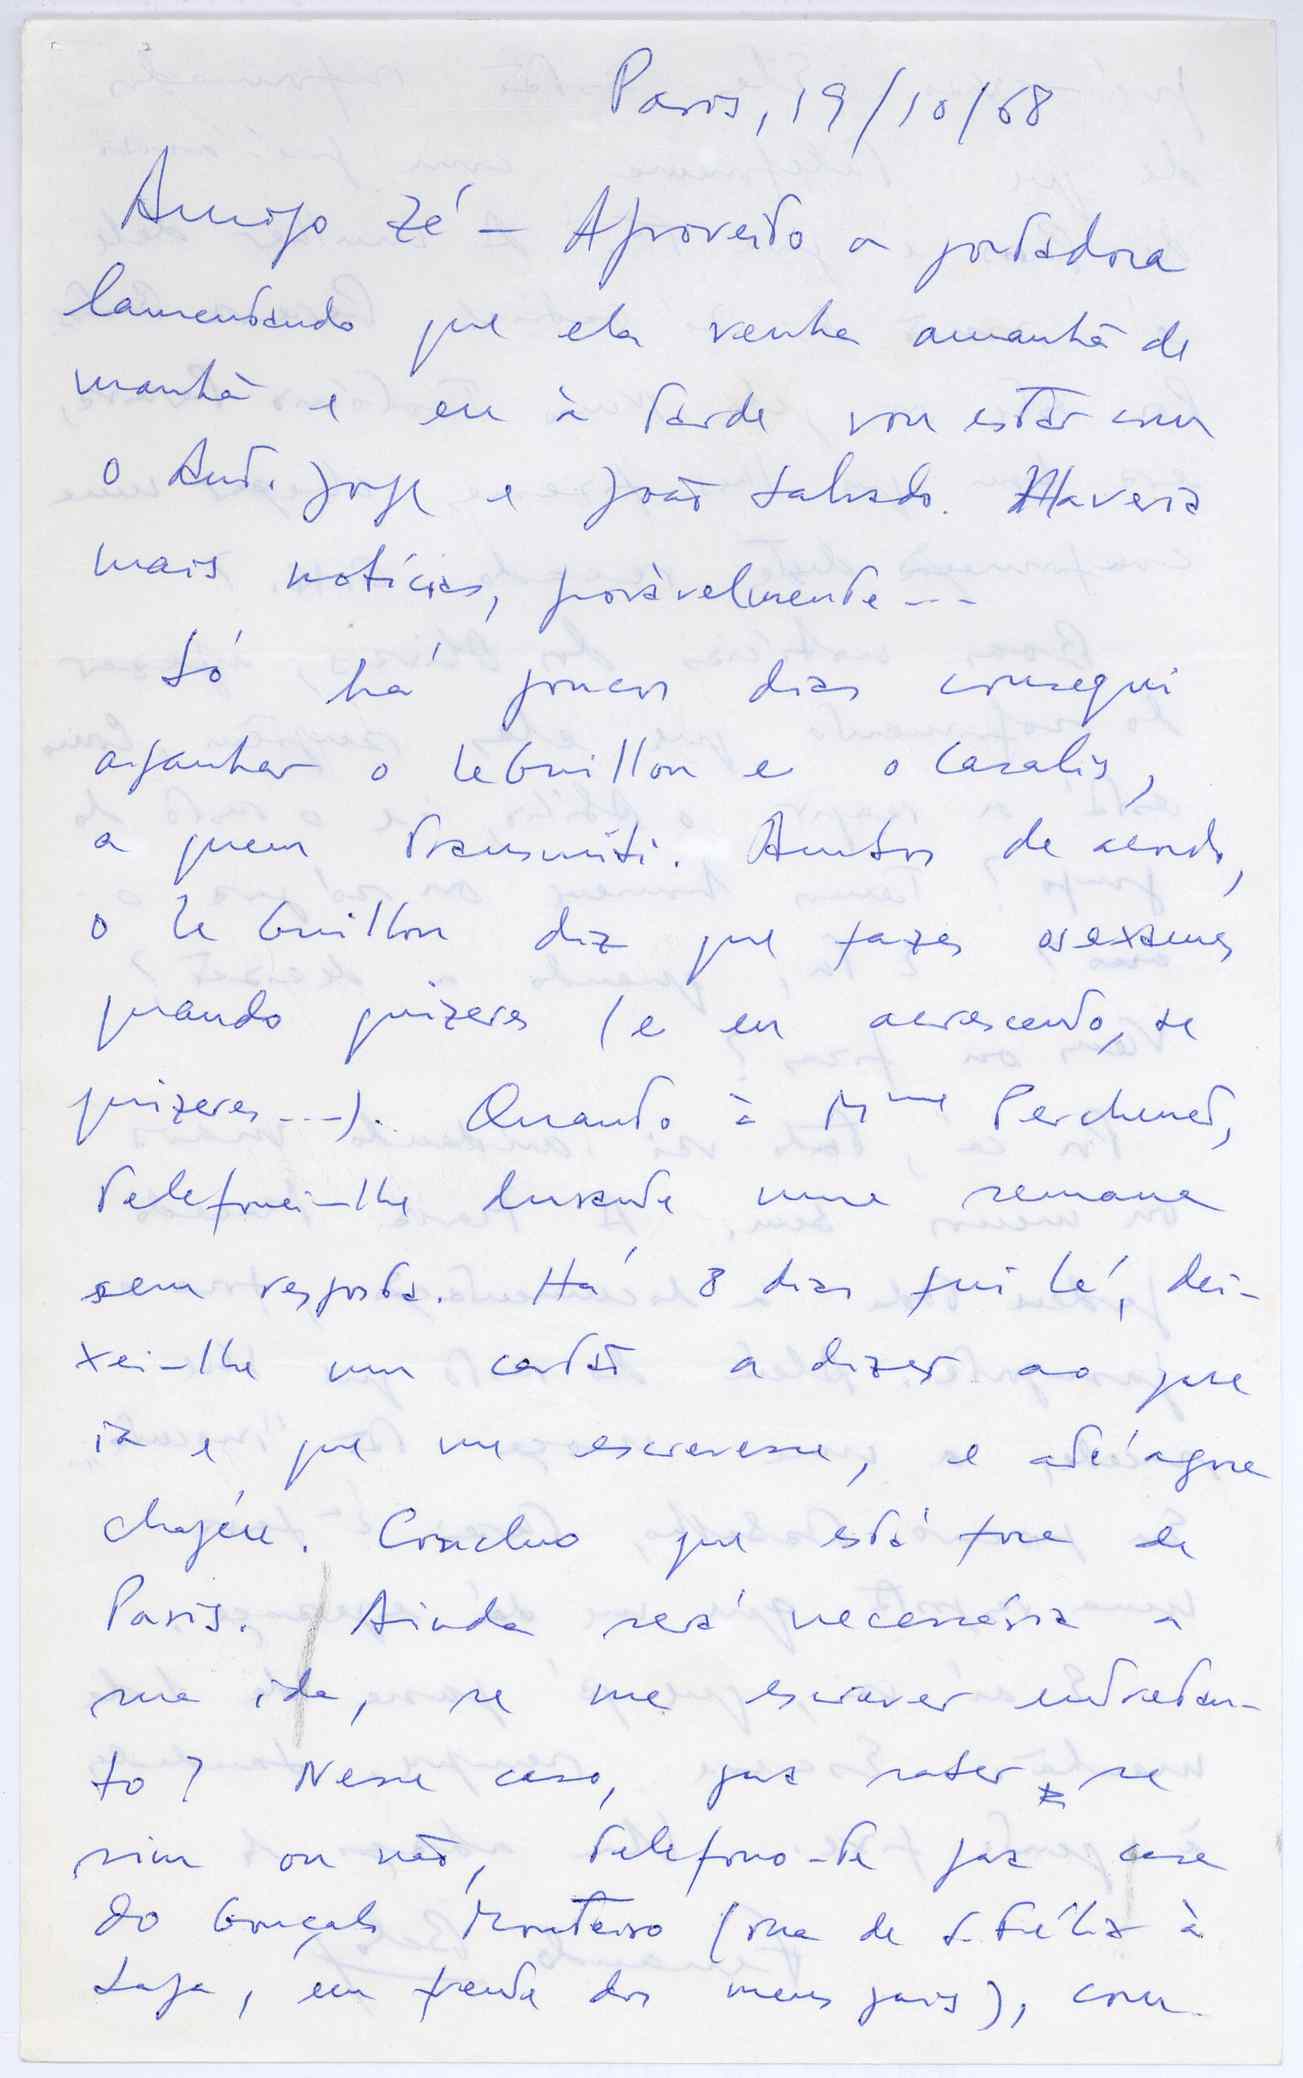 Paris, 19/10/68
Amigo Zé — Aproveito a portadora
lamentando que ela venha amanhã de
manhã e eu à tarde vou estar com
o Ant. Jorge e João Salvado. Haveria
mais notícias, provàvelmente ---
Só há poucos dias consegui
apanhar o LeGuillou e o Casalis,
a quem transmiti. Ambos de acordo,
o Le Guillou diz que fazes os exames
quando quizeres (e eu acrescento, se
quizeres ---). Quanto à Mme Perchenet,
telefonei-lhe durante uma semana
sem resposta. Há 8 dias fui lá, dei-
xei-lhe um cartão a dizer ao que
ia e que me escrevesse, e até agora
chapéu. Concluo que está fora de
Paris. Ainda será necessária a
sua ida, se me escrever entretan-
to? Nesse caso, para saber se
sim ou não, telefono-te para casa
do Gonçalo Monteiro (rua de S. Félix à
Lapa, em frente dos meus pais), com